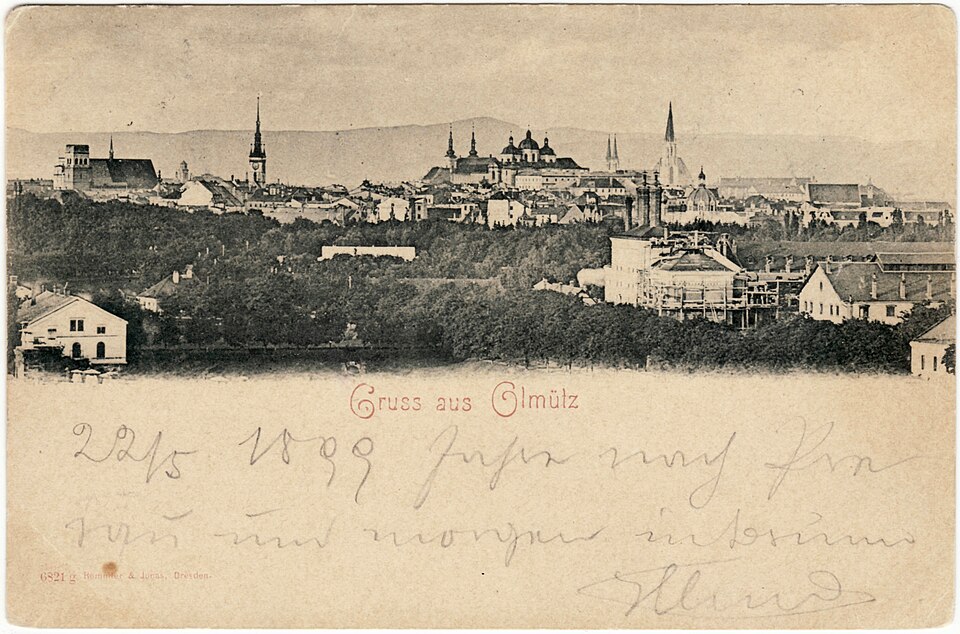 Gruss aus Olmütz
22/5 1899 Fahre nach Pre
rau und morgen
6821 g Remmler & Jonas, Dresden.